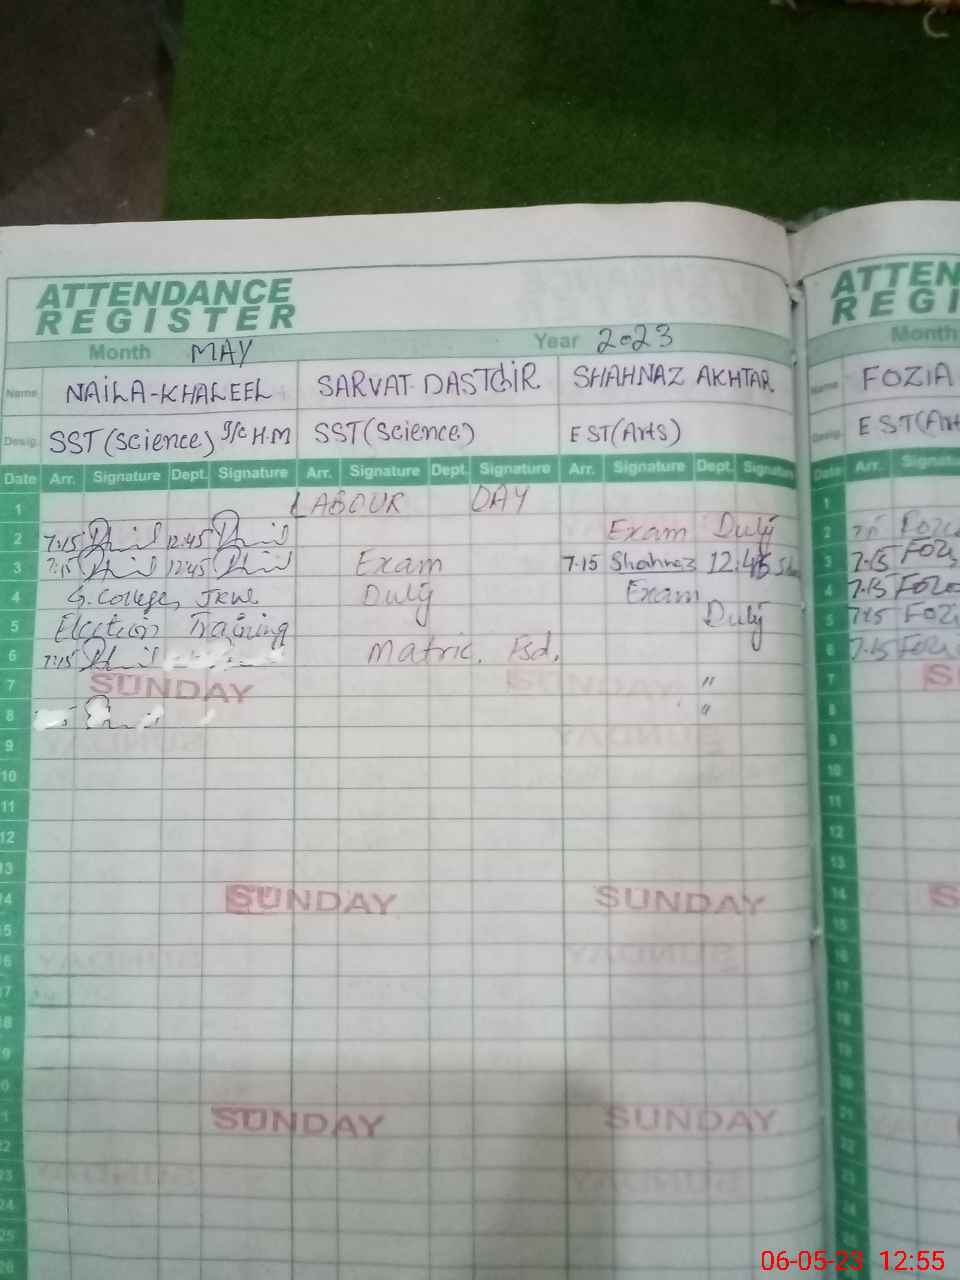 ATTENDANCE
REGISTER
Month MAY Year 2023
Name NAILA-KHALEEL SARVAT DASTGIR SHAHNAZ AKHTAR
Desig. SST (Science) I/C H.M SST (Science) EST (Arts)
Date Arr. Signature Dept. Signature Arr. Signature Dept. Signature Arr. Signature Dept. Signature
1 LABOUR DAY
2 7:15 12:45 Exam Duty
3 7:15 12:45 Exam 7.15 Shahnaz 12:45
4 G. College, Duty Exam
5 Election Training Duty
6 7:15 Matric. Fsd.
7 SUNDAY "
8 "
9
10
11
12
13
14 SUNDAY SUNDAY
15
16
17
18
19
20
21 SUNDAY SUNDAY
22
23
24
25
26
ATTEN
REGI
Month
Name FOZIA
Desig. EST (Art
Date Arr. Signatu
1
2 Fozi
3 7.15 Fozi
4 7.15 Fozi
5 7:15 Fozi
6 7.15 Fozi
7 S
8
9
10
11
12
13
14 S
15
16
17
18
19
20
21
22
23
24
25
06-05-23 12:55